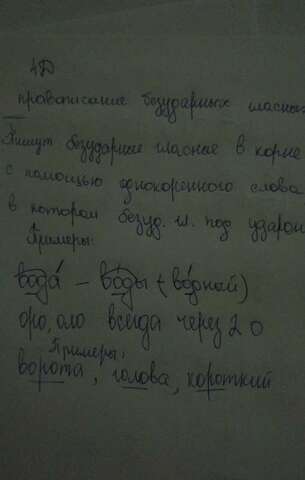 4Д
правописание безударных гласных
Пишут безударные гласные в корне
с помощью однокоренного слова
в котором безуд. гл. под ударон
Примеры:
вода́ – во́ды (во́дный)
оро, оло всегда через 2 о
Примеры:
ворота, голова, короткий